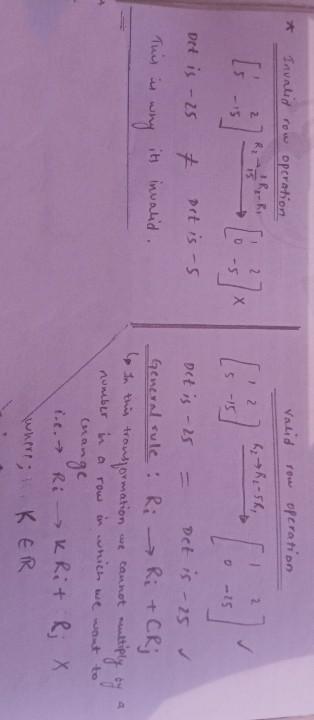 * Invalid row operation
[1 2
5 -15] R2→1/15 R2-R1 [1 2
0 -5] X
Det is -25 ≠ Det is -5
This is why its invalid.
Valid row operation
[1 2
5 -15] R2→R2-5R1 [1 2
0 -25] ✓
Det is -25 = Det is -25 ✓
General rule : Ri → Ri + CRj
↳ In this transformation we cannot multiply by a
number in a row in which we want to
change
i.e. → Ri → KRi + Rj X
where; K ∈ R